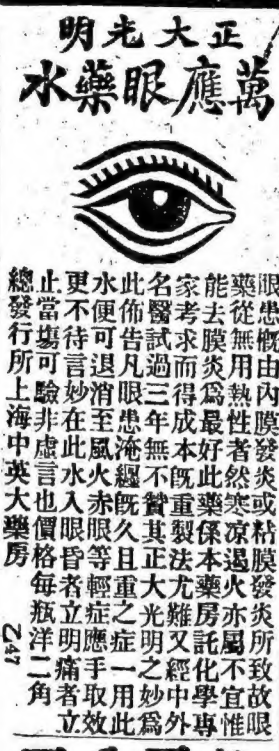 正大光明
萬應眼藥水
眼患概由內膜發炎或粘膜發炎所致故眼
藥從無用熱性者然寒凉遏火亦屬不宜惟
能去膜炎爲最好此藥係本藥房託化學專
家考求而得成本旣重製法尤難又經中外
名醫試過三年無不贊其正大光明之妙爲
此佈告凡眼患淹纏旣久且重之症一用此
水便可退消至風火赤眼等輕症應手取效
更不待言妙在此水入眼昏者立明痛者立
止當塲可驗非虛言也價格每瓶洋二角
總發行所上海中英大藥房
乙47